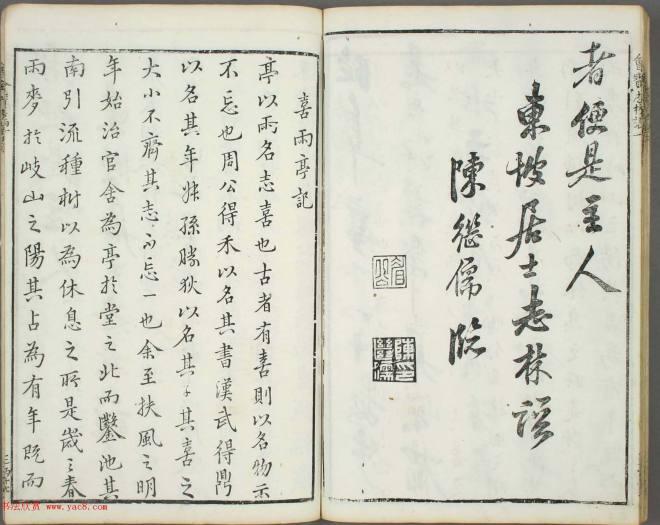 者便是主人
東坡居士志林語
陳繼儒臨
喜雨亭記
亭以雨名志喜也古者有喜則以名物示
不忘也周公得禾以名其書漢武得鼎
以名其年叔孫勝狄以名其子其喜之
大小不齊其志不忘一也余至扶風之明
年始治官舍為亭於堂之北而鑿池其
南引流種樹以為休息之所是歲之春
雨麥於岐山之陽其占為有年既而
书法欣赏 www.yac8.com